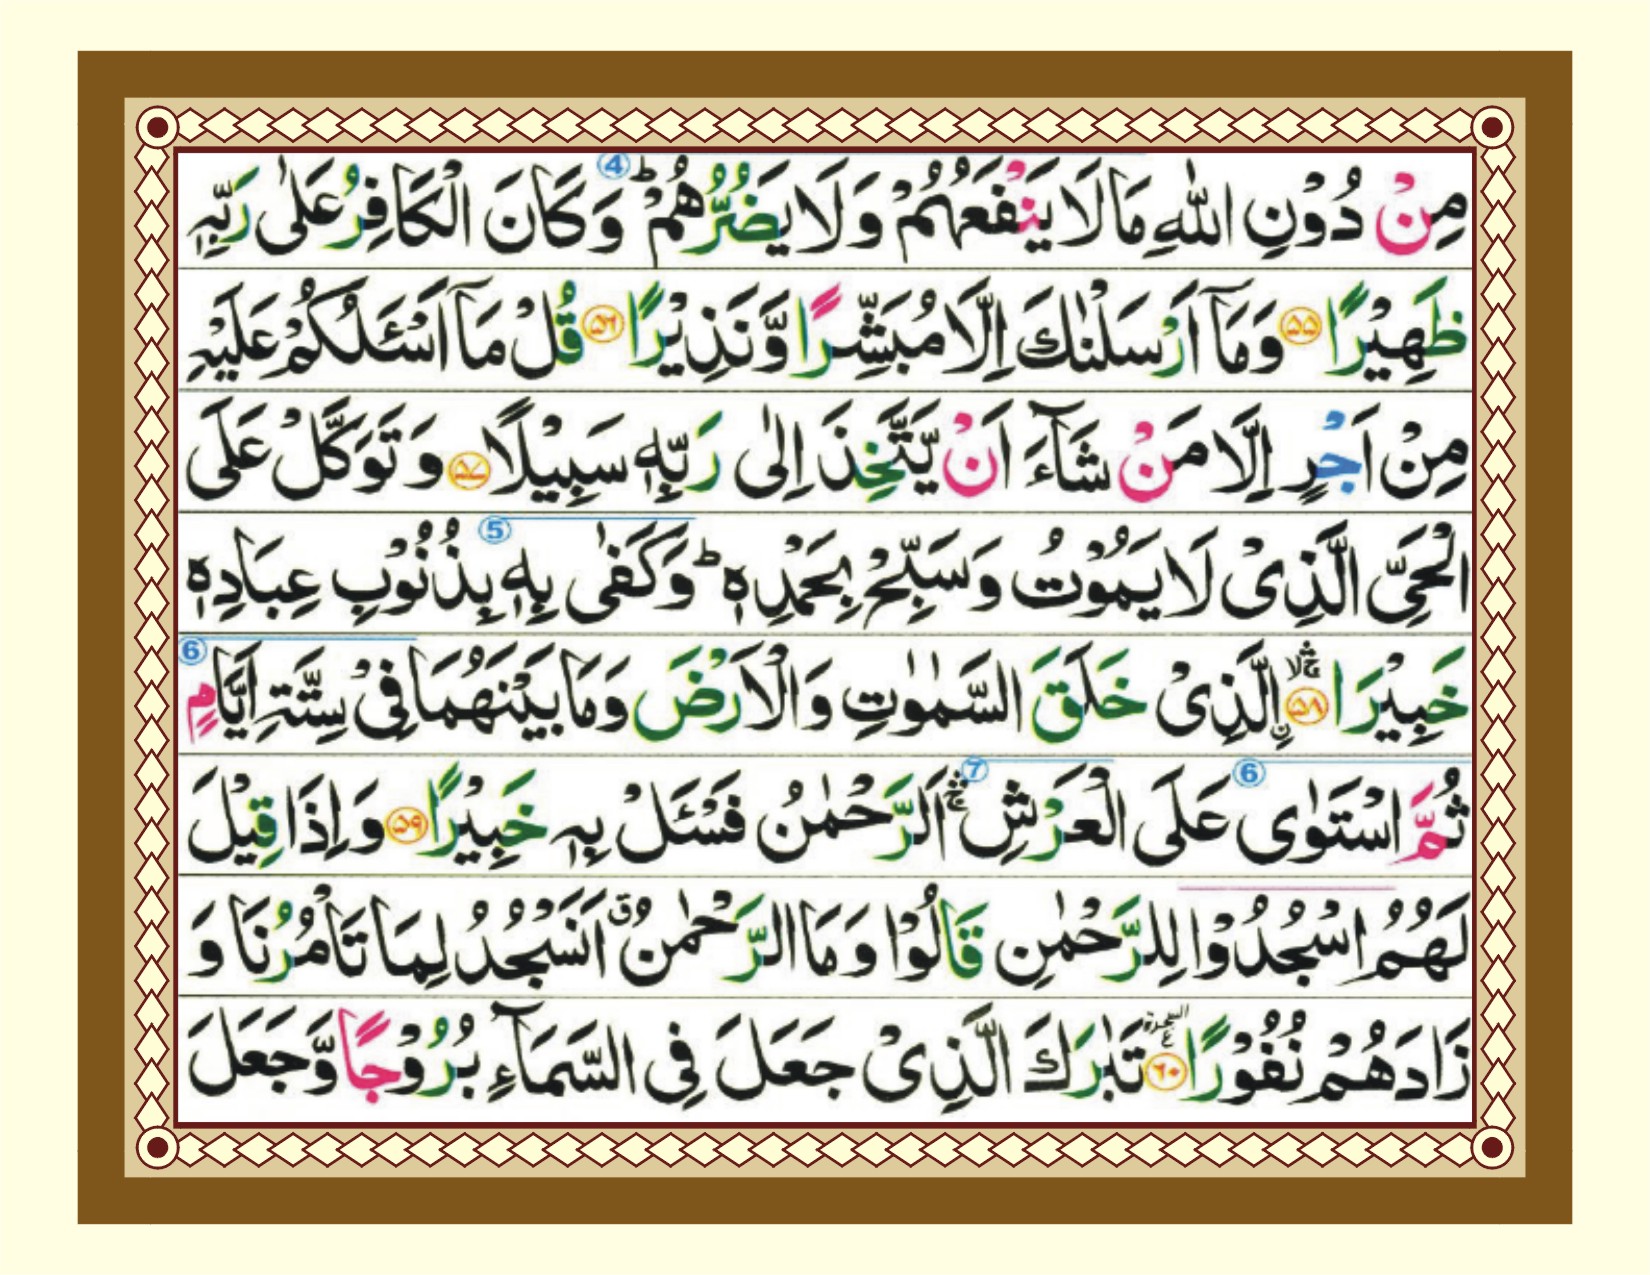 مِنْ دُوْنِ اللّٰهِ مَا لَا يَنْفَعُهُمْ وَلَا يَضُرُّهُمْ ؕ ④ وَكَانَ الْكَافِرُ عَلٰى رَبِّهٖ
ظَهِيْرًا ۵۵ وَمَاۤ اَرْسَلْنٰكَ اِلَّا مُبَشِّرًا وَّنَذِيْرًا ۵۶ قُلْ مَاۤ اَسْـَٔلُكُمْ عَلَيْهِ
مِنْ اَجْرٍ اِلَّا مَنْ شَآءَ اَنْ يَّتَّخِذَ اِلٰى رَبِّهٖ سَبِيْلًا ۵۷ وَتَوَكَّلْ عَلَى
الْحَيِّ الَّذِىْ لَا يَمُوْتُ وَسَبِّحْ بِحَمْدِهٖ ؕ وَكَفٰى ⑤ بِهٖ بِذُنُوْبِ عِبَادِهٖ
خَبِيْرَا ۵۸ ۨالَّذِىْ خَلَقَ السَّمٰوٰتِ وَالْاَرْضَ وَمَا بَيْنَهُمَا فِىْ سِتَّةِ اَيَّامٍ ⑥
ثُمَّ اسْتَوٰى ⑥ عَلَى الْعَرْشِ ۛۚ ⑦ اَلرَّحْمٰنُ فَسْـَٔلْ بِهٖ خَبِيْرًا ۵۹ وَاِذَا قِيْلَ
لَهُمُ اسْجُدُوْا لِلرَّحْمٰنِ قَالُوْا وَمَا الرَّحْمٰنُ ق اَنَسْجُدُ لِمَا تَاْمُرُنَا وَ
زَادَهُمْ نُفُوْرًا ۶۰ السجدة ع تَبٰرَكَ الَّذِىْ جَعَلَ فِى السَّمَآءِ بُرُوْجًا وَّجَعَلَ